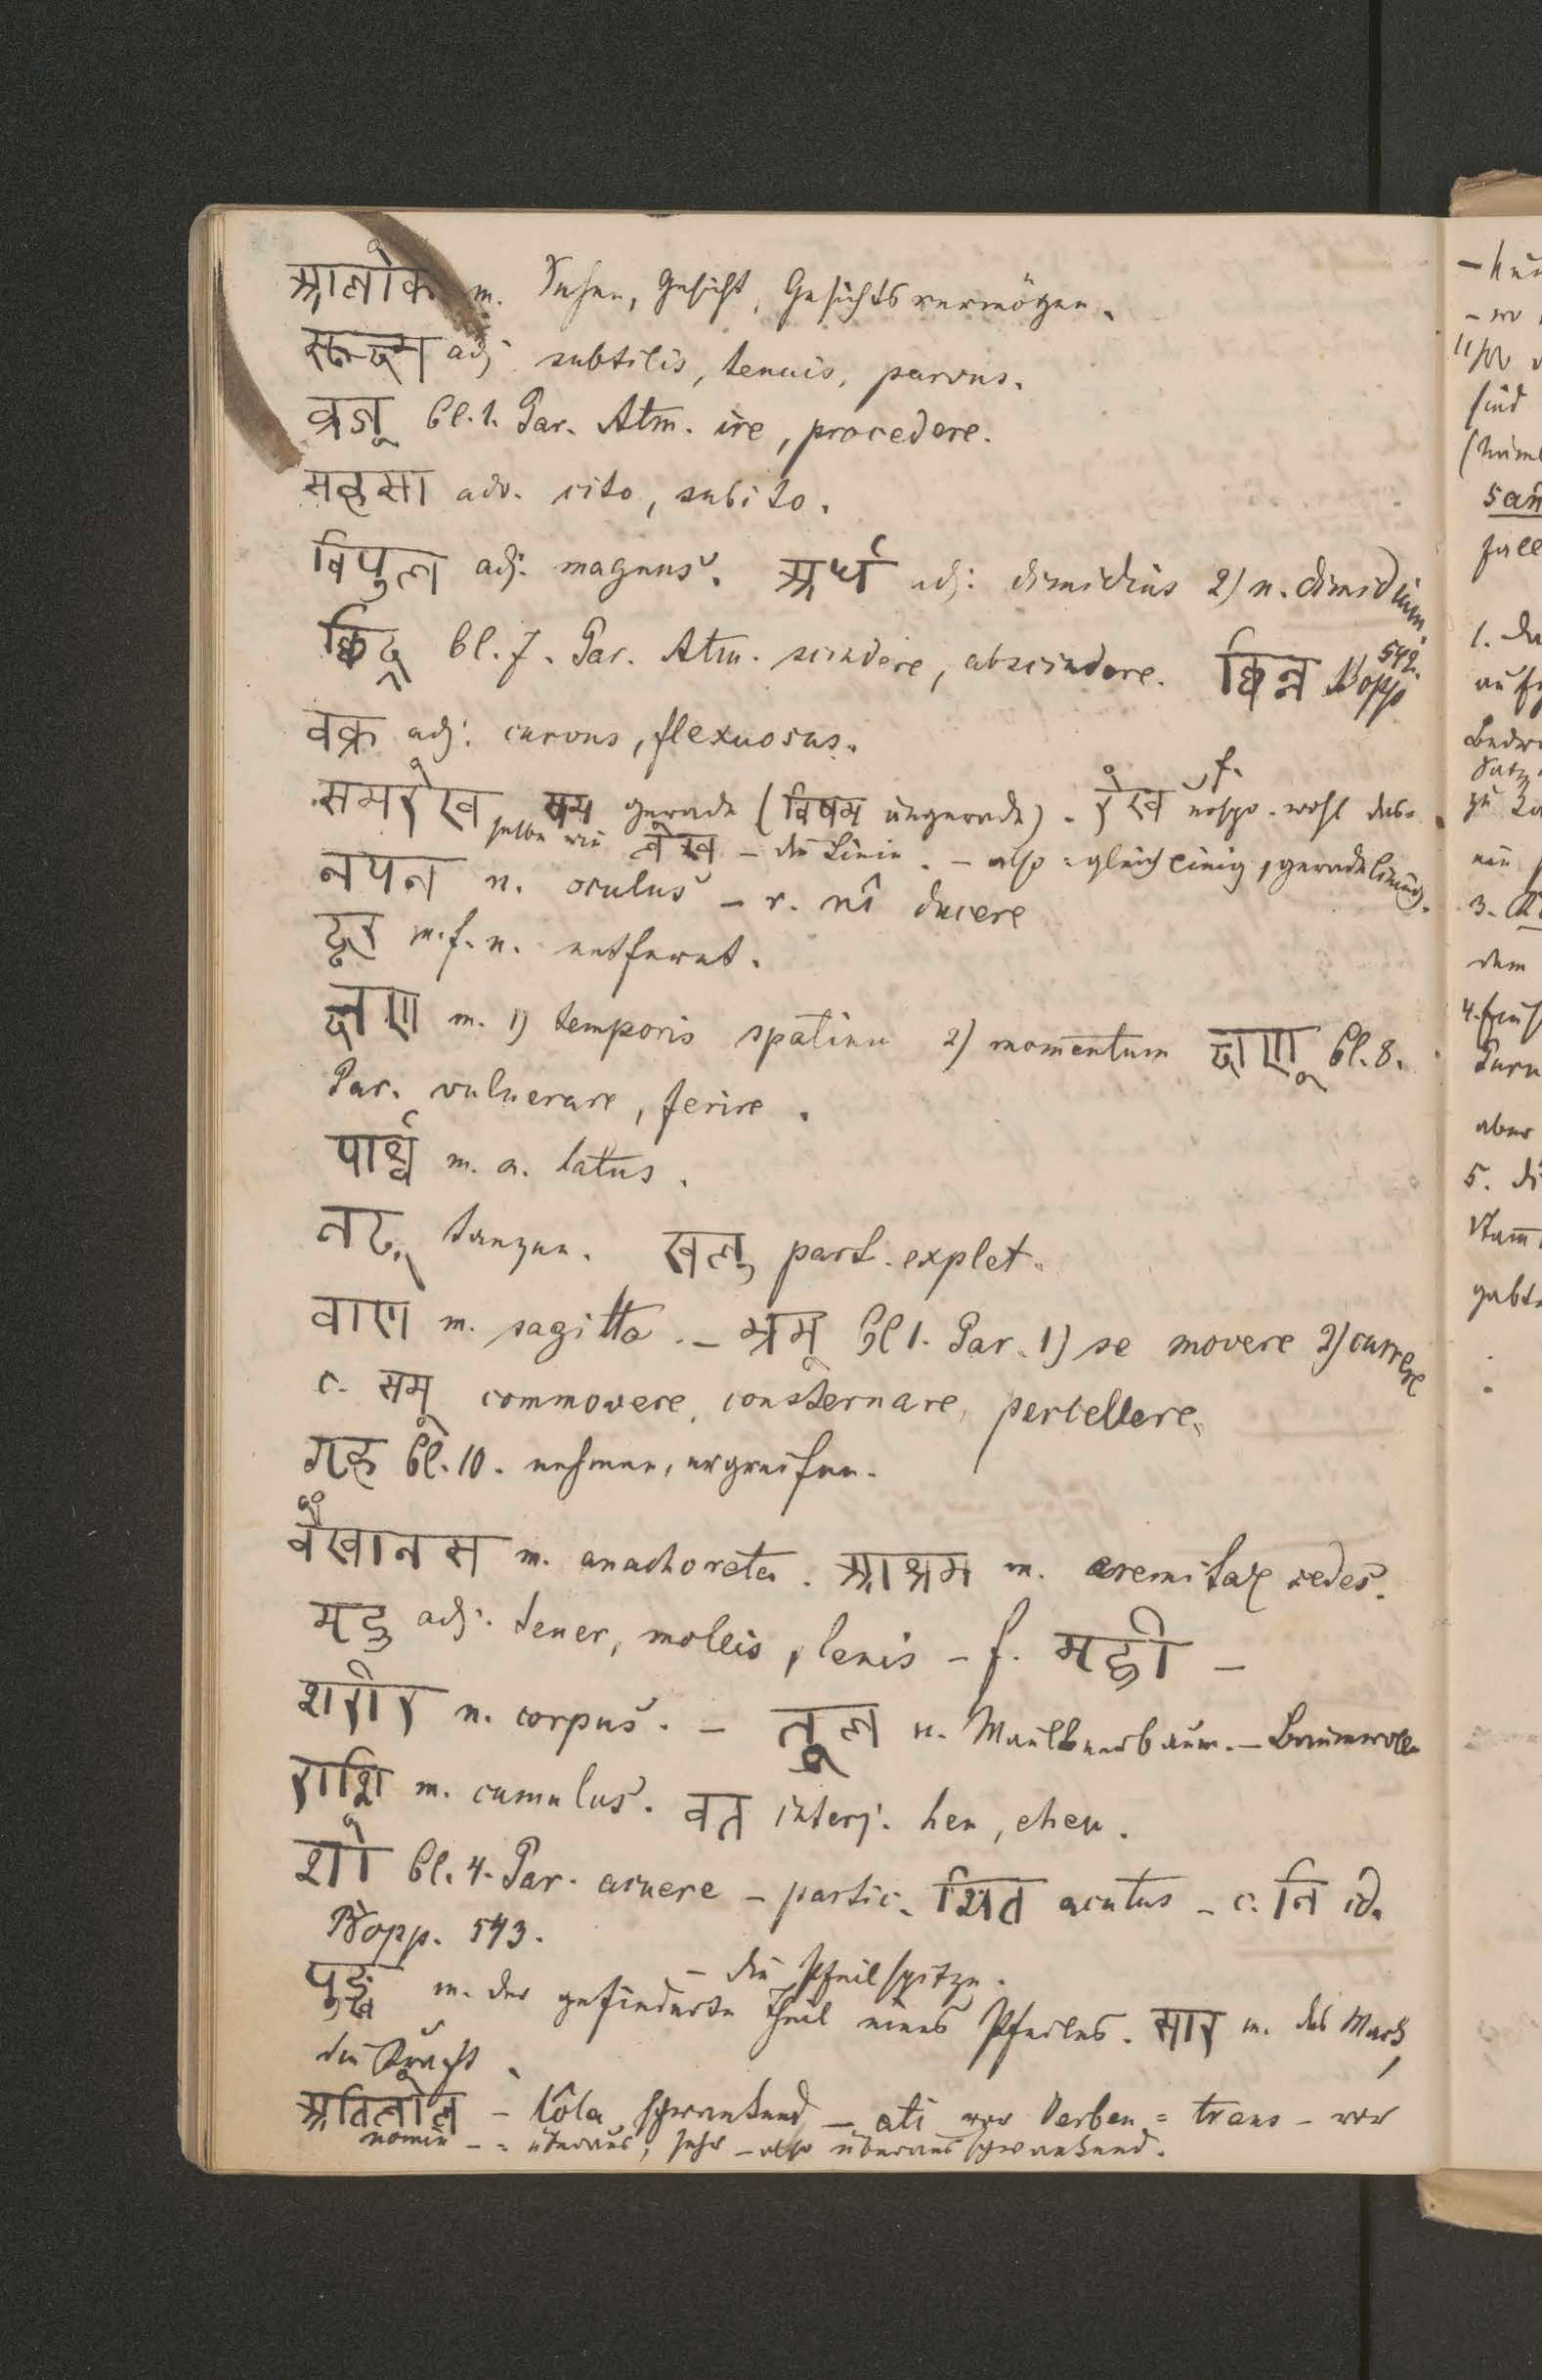 आलोक m. Sehen, Gesicht, Gesichtsvermögen.
सूक्ष्म adj: subtilis, tenuis, parvus.
व्रज् Cl. 1. Par. Atm. ire, procedere.
सहसा adv. cito, subito.
विपुल adj: magnus. अर्ध adj: dimidius 2) n. dimidium.
छिद् Cl. 7. Par. Atm. scindere, abscindere. छिन्न Bopp 542.
वक्र adj: curvus, flexuosus.
समरेख सम gerade (विषम ungerade). रेख f. wohl das-
selbe wie लेख – die Linie. – also = gleichlinig, geradelinig.
नयन n. oculus – r. nî ducere
दूर m. f. n. entfernt.
क्षण m. 1) temporis spatium 2) momentum क्षण् Cl. 8.
Par. vulnerare, ferire.
पार्श्व m. n. latus.
नट् tanzen. खलु part. explet.
वाण m. sagitta. – भ्रम् Cl 1. Par. 1) se movere 2) currere
c. सम् commovere, consternare, percellere.
गृह् Cl. 10. nehmen, ergreifen.
वैखानस m. anachoreta. आश्रम m. eremitae sedes.
मृदु adj: tener, mollis, lenis – f. मृद्वी –
शरीर n. corpus. – तूल n. Maulbeerbaum. – Baumwolle
राशि m. cumulus. वत interj. heu, eheu.
शो Cl. 4. Par. acuere – partic. शित acutus – c. नि id.
Bopp. 543.
– die Pfeilspitze.
पुङ्ख m. der gefiederte Theil eines Pfeiles. सार m. das Mark,
die Kraft.
अतिलोल – lôla schwankend – ati vor Verben = trans – vor
nomin – = überaus, sehr – also überaus schwankend.